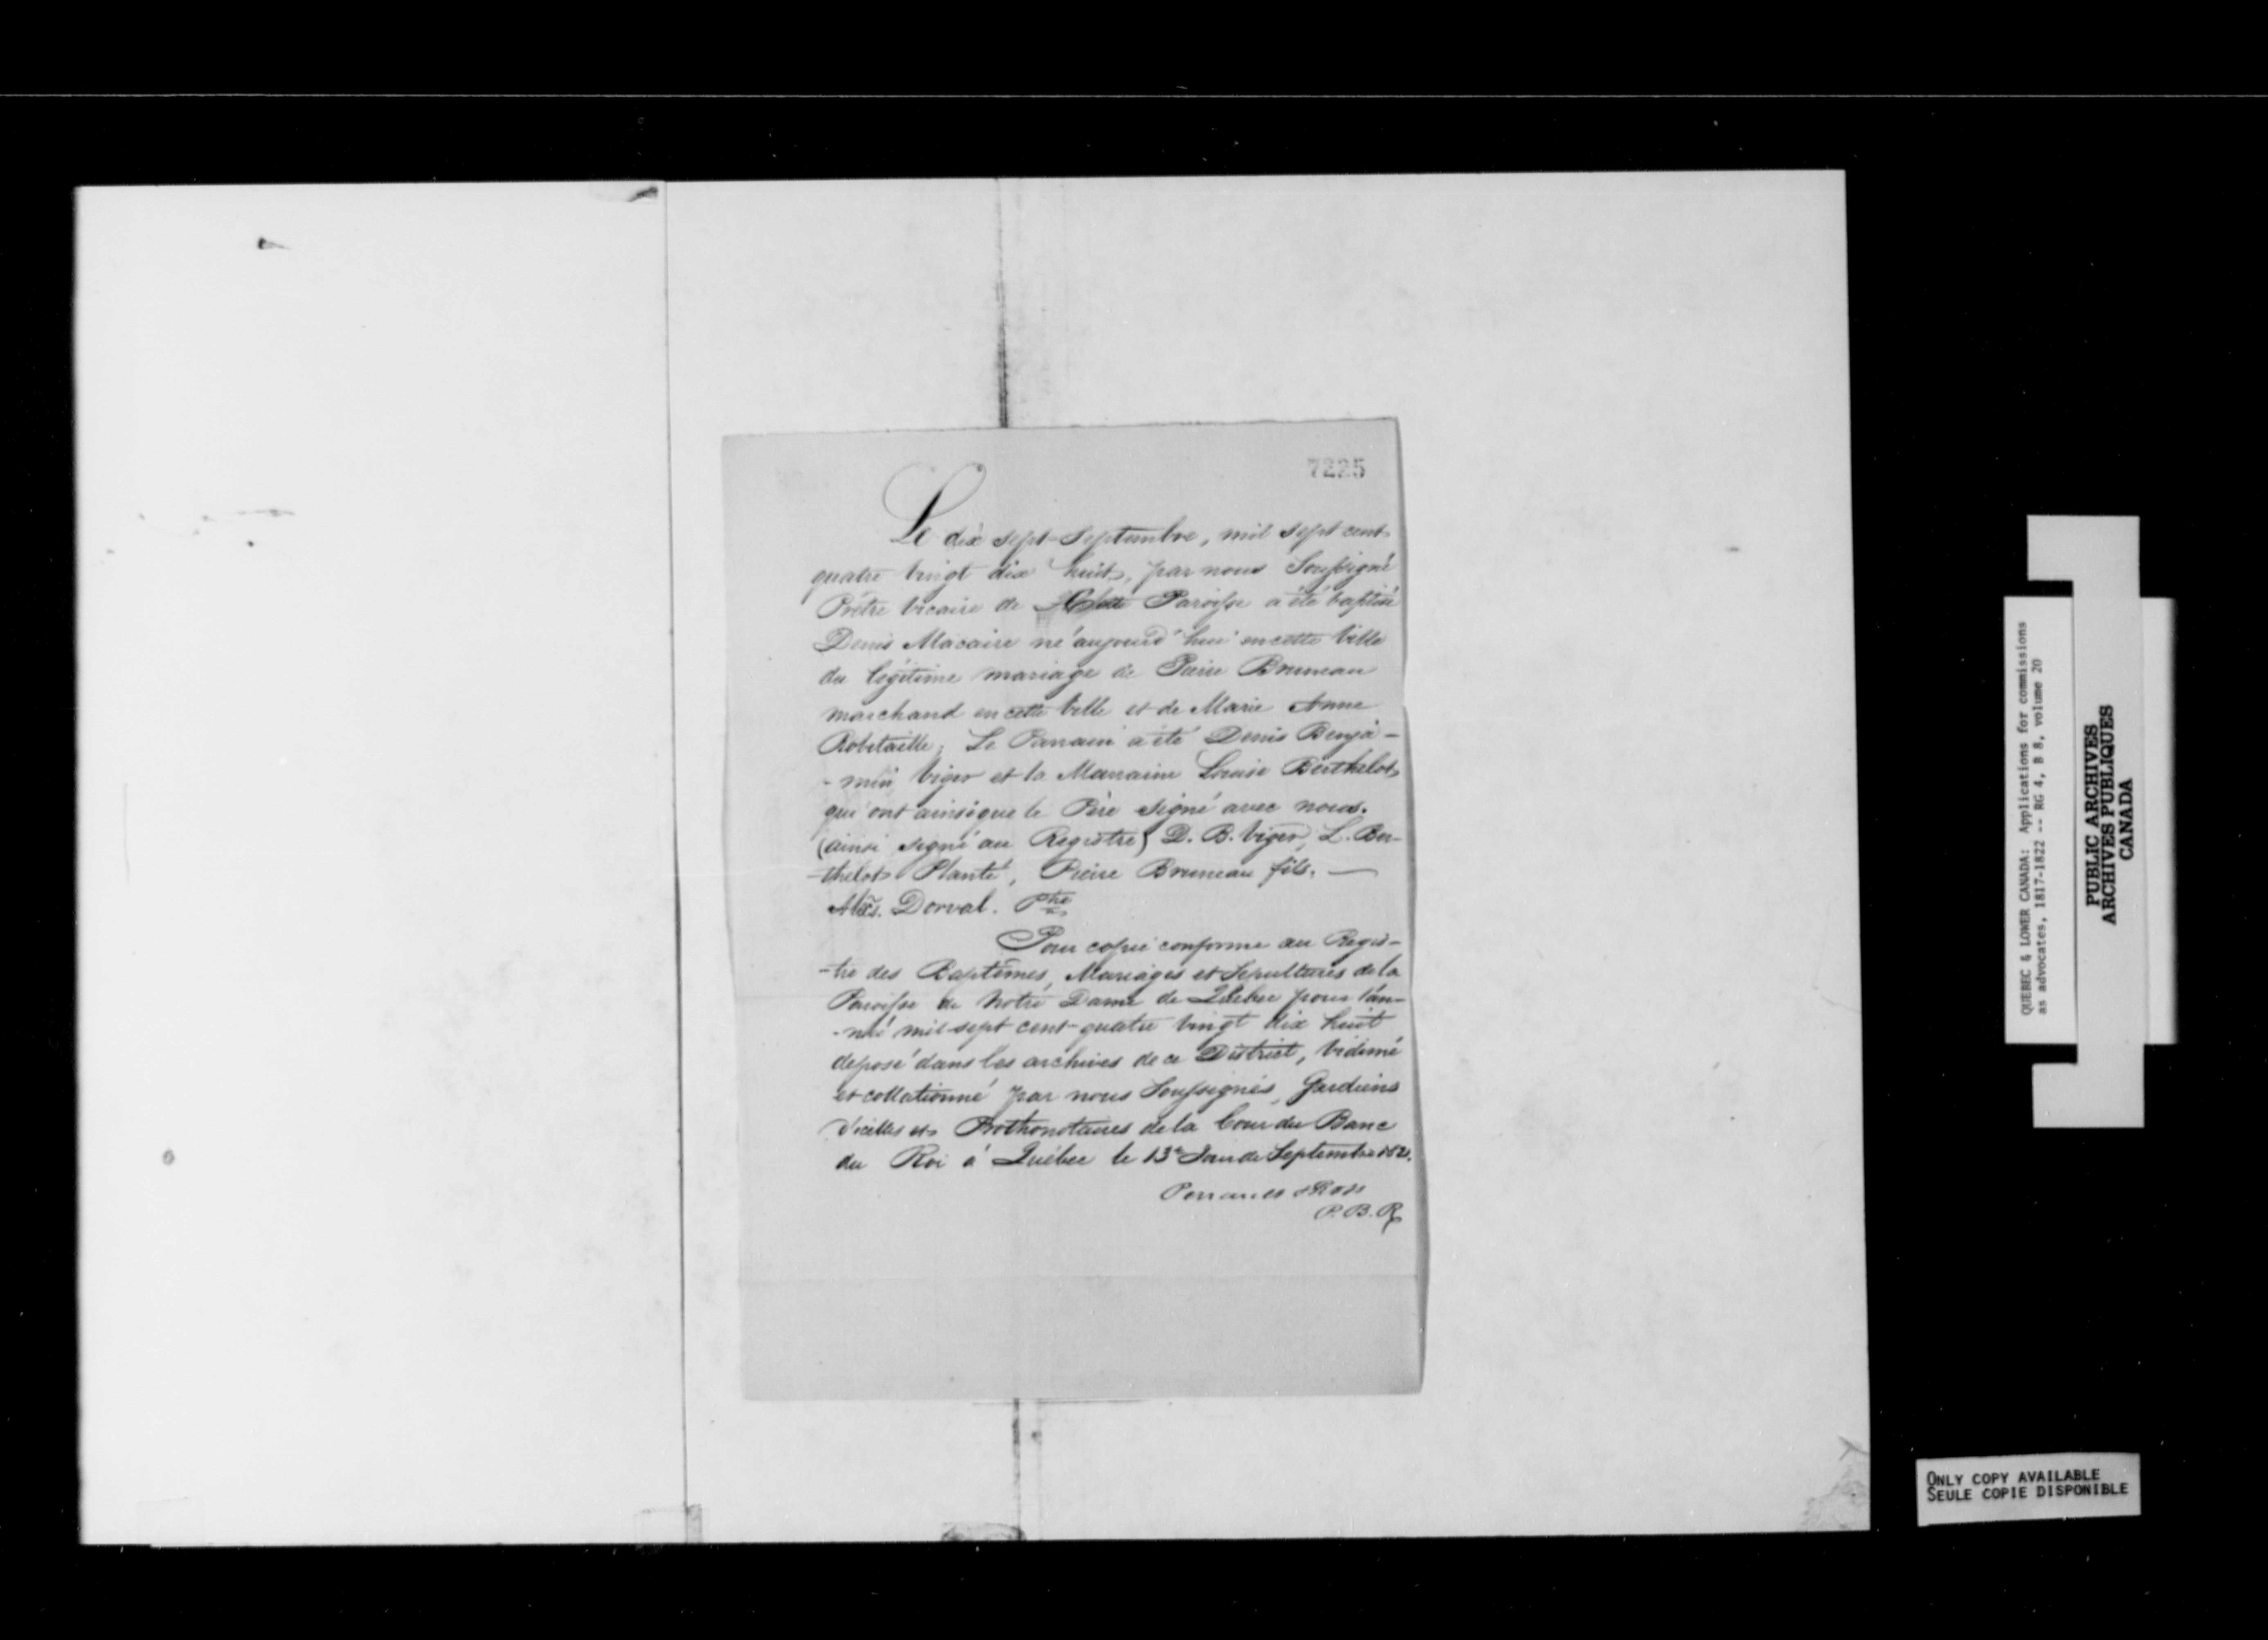 7225
Le dix sept Septembre, mil sept cent
quatre vingt dix huit, par nous Soussigné
Prêtre Vicaire de Cette Paroisse a été baptisé
Denis Macaire né aujourd'hui en cette Ville
du légitime mariage de Pierre Bruneau
marchand en cette Ville et de Marie Anne
Robitaille; Le Parrain a été Denis Benja-
-min Viger et la Marraine Louise Berthelot
qui ont ainsi que le Père signé avec nous.
(ainsi signé au Registre) D. B. Viger, L. Ber-
-thelot Planté, Pierre Bruneau fils. —
Alexs. Dorval. Ptre
Pour copie conforme au Regis-
-tre des Baptêmes, Mariages et Sépultures de la
Paroisse de Notre Dame de Québec pour l'an-
-née mil sept cent quatre vingt dix huit
déposé dans les archives de ce District, Vidimé
et collationné par nous Soussignés, Gardiens
d'icelles et Prothonotaires de la Cour du Banc
du Roi à Québec le 13e Jour de Septembre
Perrault & Ross
P. B. R
QUEBEC & LOWER CANADA: Applications for commissions
as advocates, 1817-1822 -- RG 4, B 8, volume 20
PUBLIC ARCHIVES
ARCHIVES PUBLIQUES
CANADA
ONLY COPY AVAILABLE
SEULE COPIE DISPONIBLE